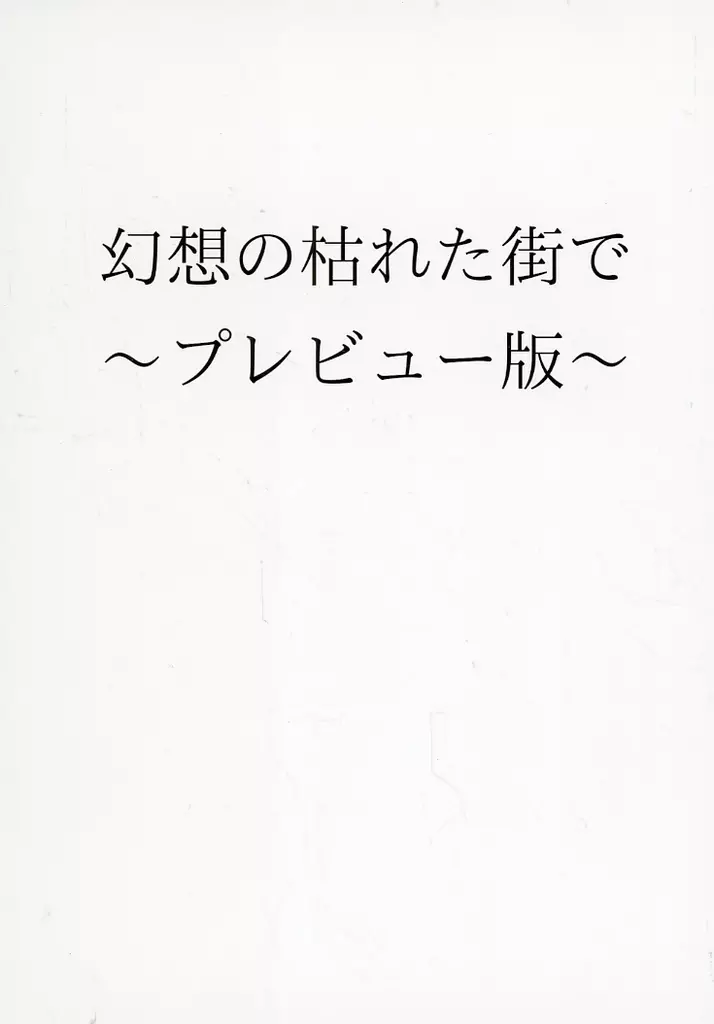 幻想の枯れた街で
～プレビュー版～